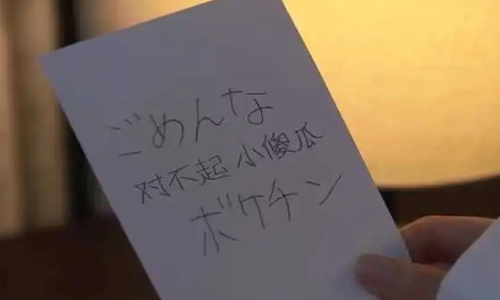 ごめんな
对不起 小傻瓜
ボケチン